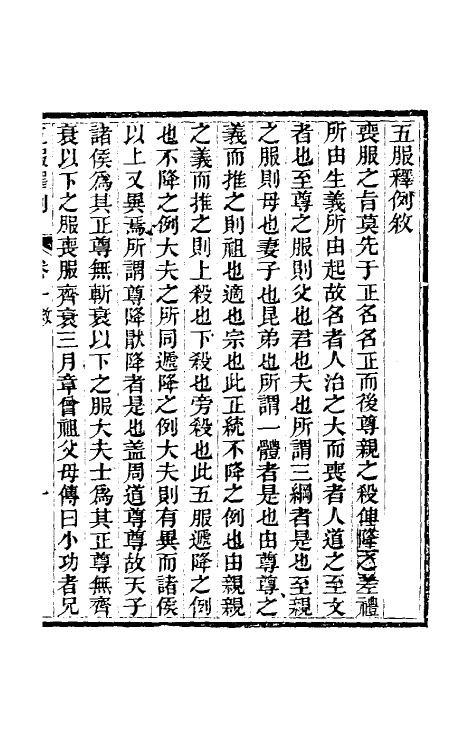 五服釋例敘
喪服之旨莫先于正名名正而後尊親之殺伸降之差禮
所由生義所由起故名者人治之大而喪者人道之至文
者也至尊之服則父也君也夫也所謂三綱者是也至親
之服則母也妻子也昆弟也所謂一體者是也由尊尊之
義而推之則祖也適也宗也此正統不降之例也由親親
之義而推之則上殺也下殺也旁殺也此五服遞降之例
也不降之例大夫之所同遞降之例大夫則有異而諸侯
以上又異焉所謂尊降猒降者是也盖周道尊尊故天子
諸侯爲其正尊無斬衰以下之服大夫士爲其正尊無齊
衰以下之服喪服齊衰三月章曾祖父母傳曰小功者兄
五服釋例 卷一敘 一